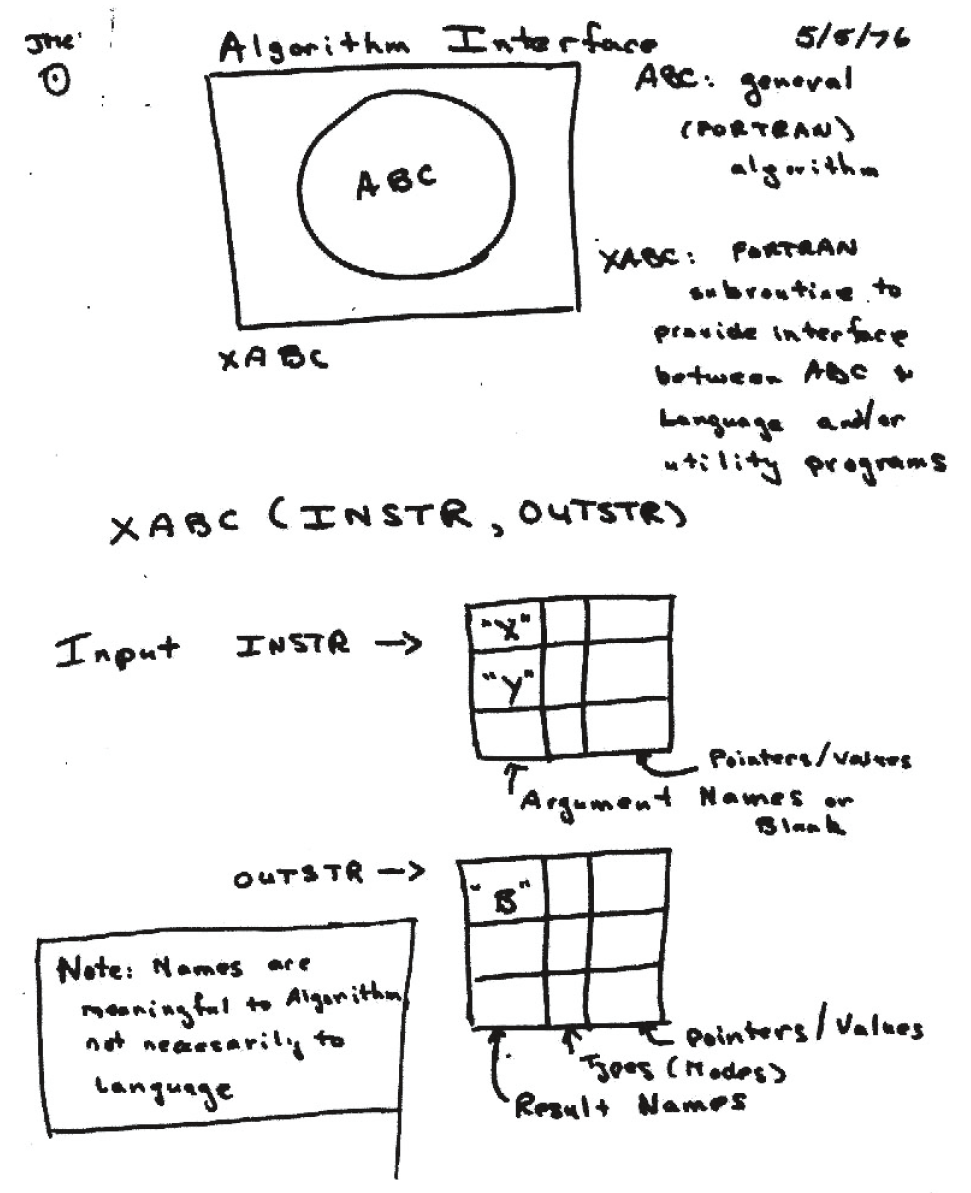 JMC
Algorithm Interface
5/5/76
ABC
XABC
ABC: general
(FORTRAN)
algorithm
XABC: FORTRAN
subroutine to
provide interface
between ABC &
Language and/or
utility programs
XABC (INSTR, OUTSTR)
Input INSTR →
"X"
"Y"
Pointers/Values
Argument Names or
Blank
OUTSTR →
"B"
Pointers/Values
Types (Modes)
Result Names
Note: Names are
meaningful to Algorithm,
not necessarily to
Language